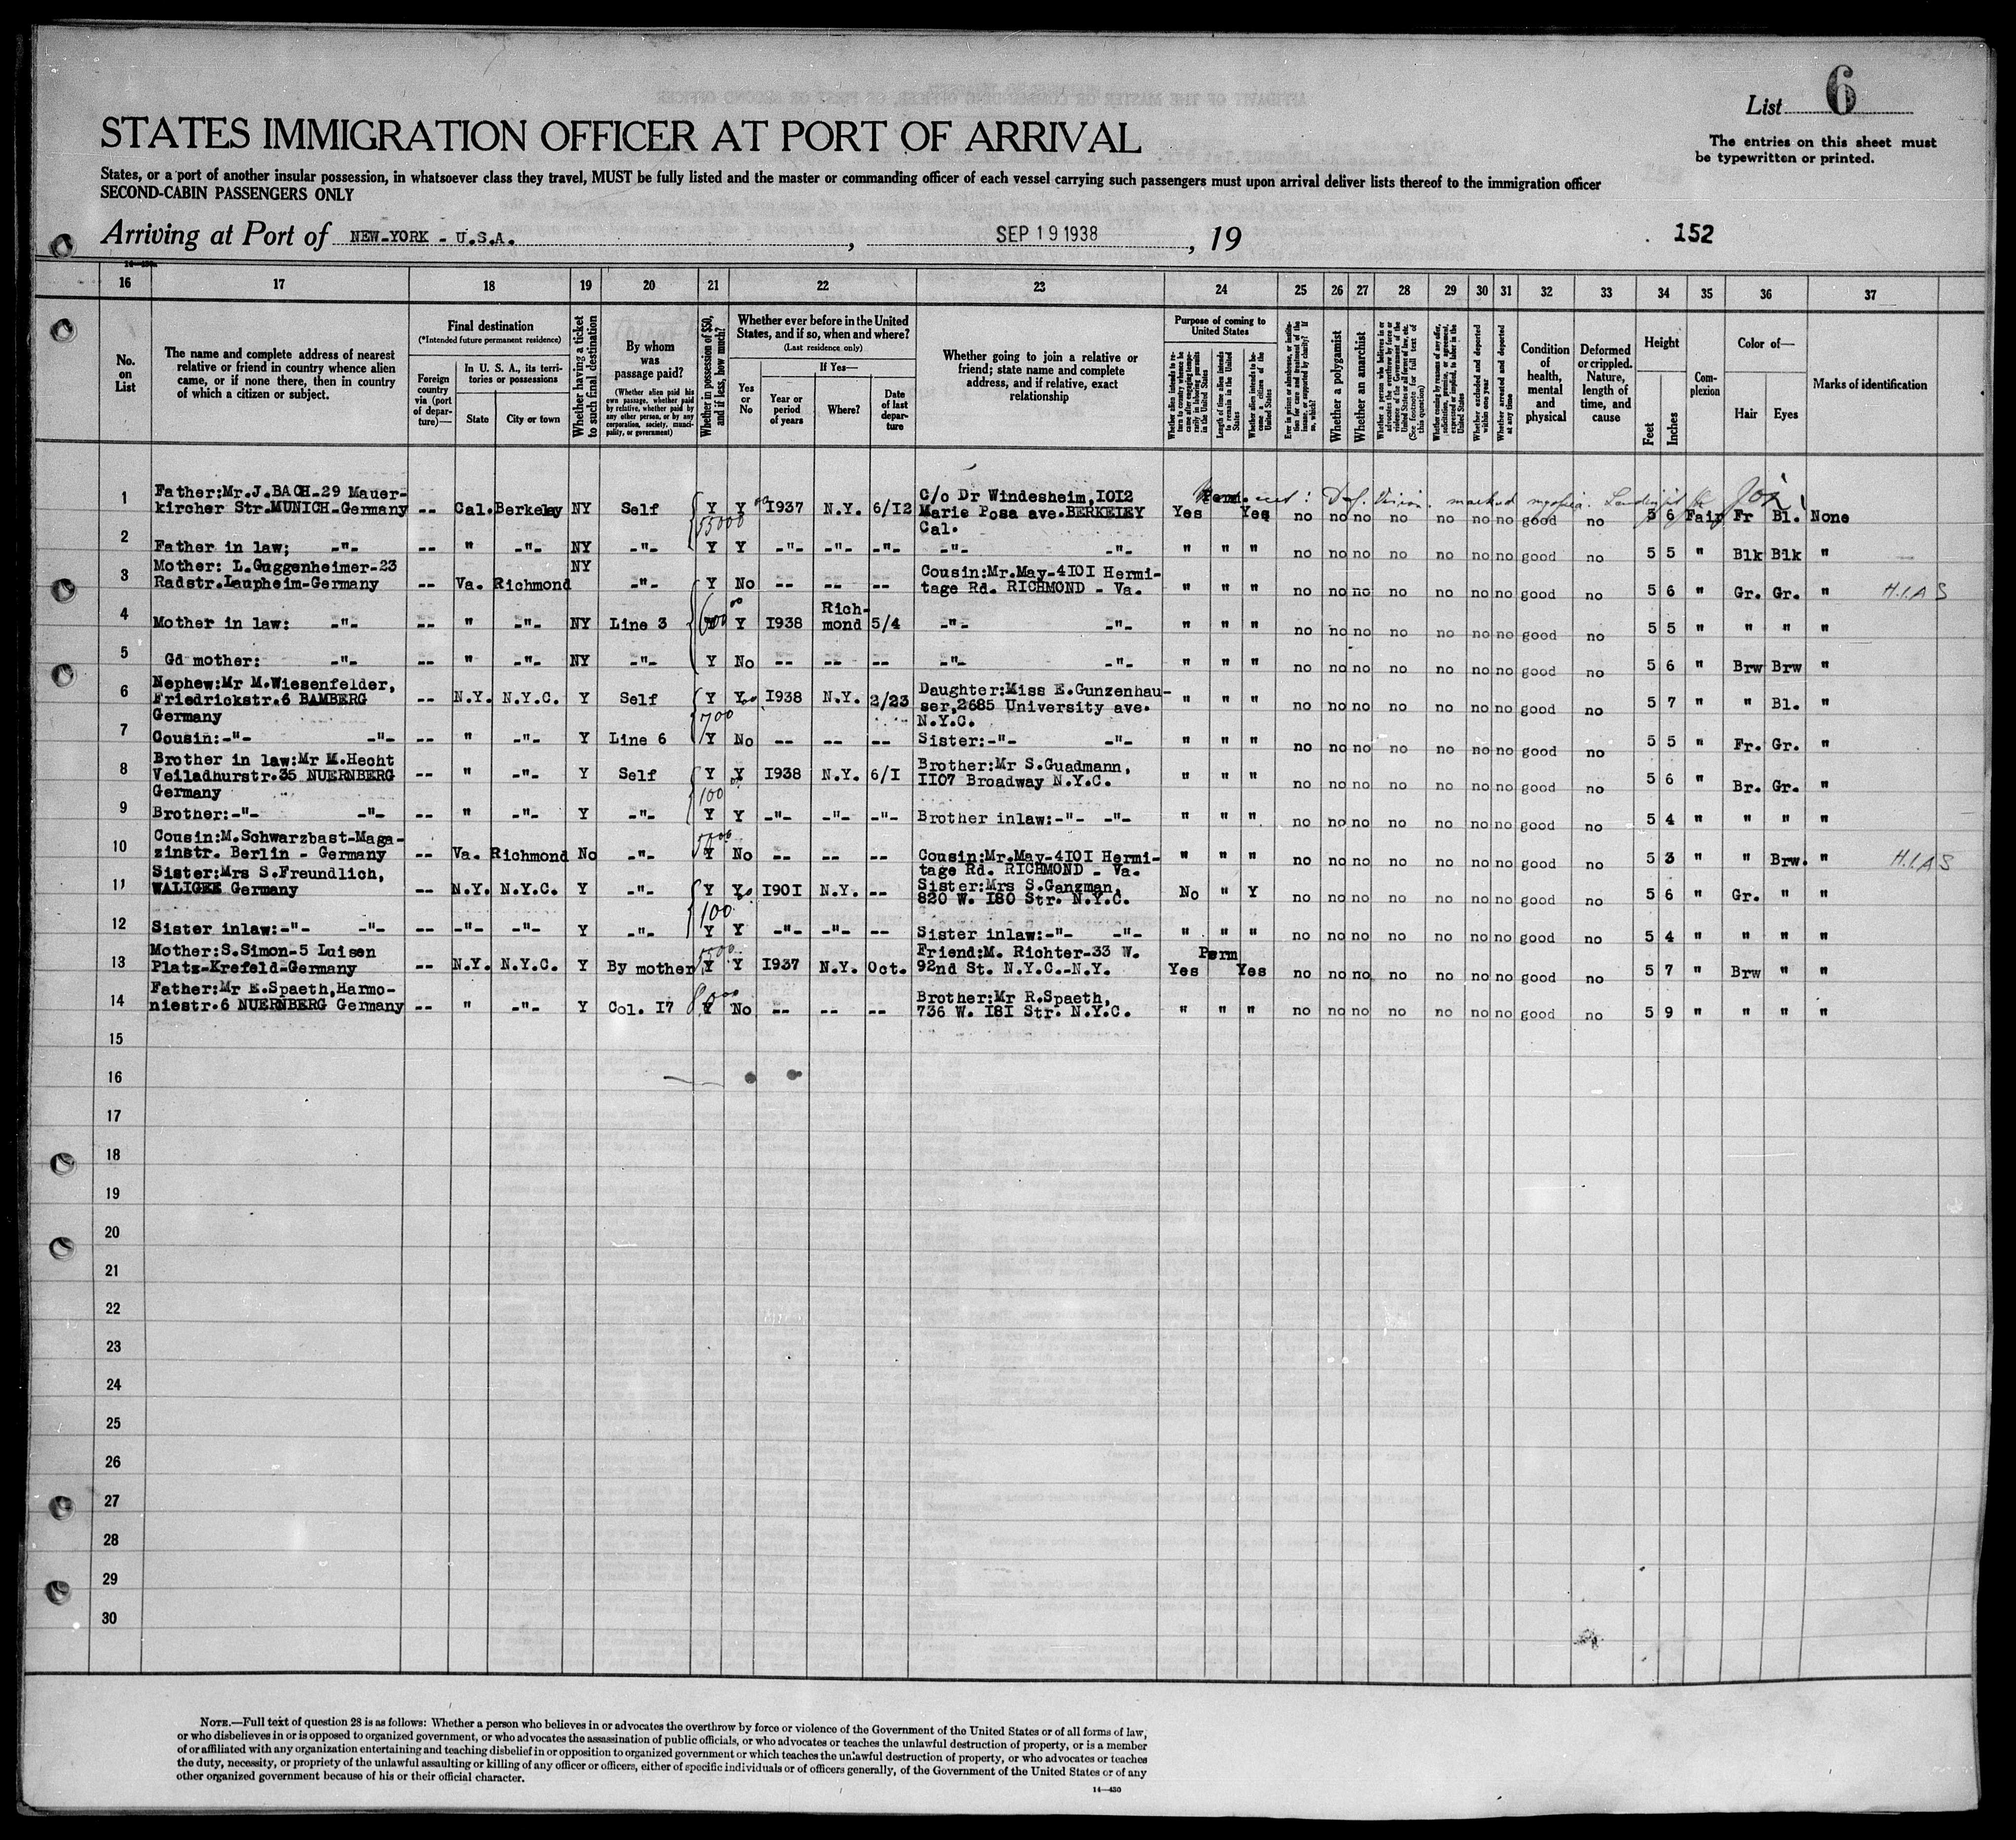 List 6
The entries on this sheet must
be typewritten or printed.
STATES IMMIGRATION OFFICER AT PORT OF ARRIVAL
States, or a port of another insular possession, in whatsoever class they travel, MUST be fully listed and the master or commanding officer of each vessel carrying such passengers must upon arrival deliver lists thereof to the immigration officer
SECOND-CABIN PASSENGERS ONLY
Arriving at Port of NEW-YORK - U.S.A. , SEP 19 1938 , 19
152
16 17 18 19 20 21 22 23 24 25 26 27 28 29 30 31 32 33 34 35 36 37
No. on List
The name and complete address of nearest relative or friend in country whence alien came, or if none there, then in country of which a citizen or subject.
Final destination
(*Intended future permanent residence)
Foreign country via (port of departure)—
In U. S. A., its territories or possessions
State
City or town
Whether having a ticket to such final destination
By whom was passage paid?
(Whether alien paid his own passage, whether paid by relative, whether paid by any other person, or by any corporation, society, municipality, or government)
Whether in possession of $50, and if less, how much?
Whether ever before in the United States, and if so, when and where?
(Last residence only)
Yes or No
If Yes—
Year or period of years
Where?
Date of last departure
Whether going to join a relative or friend; state name and complete address, and if relative, exact relationship
Purpose of coming to United States
Length of time alien intends to remain in the United States
Whether alien intends to become a citizen of the United States
Whether a polygamist
Whether an anarchist
Whether excluded and deported within one year
Whether arrested and deported at any time
Condition of health, mental and physical
Deformed or crippled. Nature, length of time, and cause
Height
Feet
Inches
Complexion
Color of—
Hair
Eyes
Marks of identification
1 Father:Mr.J.BACH-29 Mauer-
kircher Str.MUNICH-Germany -- Cal. Berkeley NY Self Y Y 1937 N.Y. 6/12 C/o Dr Windesheim,1012
Marie Posa ave.BERKELEY
Cal. Yes Perm. Yes no no no no no no no good no 5 6 Fair Fr Bl. None
55000
2 Father in law; -"- -- " -"- NY -"- Y Y -"- -"- -"- -"- -"- " " " no no no no no no no good no 5 5 " Blk Blk "
3 Mother: L.Guggenheimer-23 NY
Radstr.Laupheim-Germany -- Va. Richmond -"- Y No -- -- -- Cousin:Mr.May-4101 Hermi-
tage Rd. RICHMOND - Va. " " " no no no no no no no good no 5 6 " Gr. Gr. " H.I.A S
4 Mother in law: -"- -- " -"- NY Line 3 Y 1938 Rich-
mond 5/4 -"- -"- " " " no no no no no no no good no 5 5 " " " "
5 Gd mother: -"- -- " -"- NY -"- Y No -- -- -- -"- -"- " " " no no no no no no no good no 5 6 " Brw Brw "
6 Nephew:Mr M.Wiesenfelder,
Friedrickstr.6 BAMBERG
Germany -- N.Y. N.Y.C. Y Self Y Y 1938 N.Y. 2/23 Daughter:Miss E.Gunzenhau-
ser,2685 University ave.
N.Y.C. " " " no no no no no no no good no 5 7 " " Bl. "
700
7 Cousin:-"- -"- -- " -"- Y Line 6 Y No -- -- -- Sister:-"- -"- " " " no no no no no no no good no 5 5 " Fr. Gr. "
8 Brother in law:Mr M.Hecht
Veiladhurstr.35 NUERNBERG
Germany -- " -"- Y Self Y Y 1938 N.Y. 6/1 Brother:Mr S.Guadmann,
1107 Broadway N.Y.C. " " " no no no no no no no good no 5 6 " Br. Gr. "
100
9 Brother:-"- -"- -- " -"- Y -"- Y Y -"- -"- -"- Brother inlaw:-"- -"- " " " no no no no no no no good no 5 4 " " " "
10 Cousin:M.Schwarzbast-Maga-
zinstr. Berlin - Germany -- Va. Richmond No -"- Y No -- -- -- Cousin:Mr.May-4101 Hermi-
tage Rd. RICHMOND - Va. " " " no no no no no no no good no 5 3 " " Brw. " H.I.A S
11 Sister:Mrs S.Freundlich,
Germany -- N.Y. N.Y.C. Y -"- Y Y 1901 N.Y. -- Sister:Mrs S.Gangman,
820 W. 180 Str. N.Y.C. No " Y no no no no no no no good no 5 6 " Gr. " "
100
12 Sister inlaw:-"- -"- -- -"- -"- Y -"- Y Y -"- -"- -- Sister inlaw:-"- -"- " " " no no no no no no no good no 5 4 " " " "
13 Mother:S.Simon-5 Luisen
Platz-Krefeld-Germany -- N.Y. N.Y.C. Y By mother Y Y 1937 N.Y. Oct. Friend:M. Richter-33 W.
92nd St. N.Y.C.-N.Y. Yes Perm Yes no no no no no no no good no 5 7 " Brw " "
14 Father:Mr E.Spaeth,Harmo-
niestr.6 NUERNBERG Germany -- " -"- Y Col. 17 Y No -- -- -- Brother:Mr R.Spaeth,
736 W. 181 Str. N.Y.C. " " " no no no no no no no good no 5 9 " " " "
15
16
17
18
19
20
21
22
23
24
25
26
27
28
29
30
NOTE.—Full text of question 28 is as follows: Whether a person who believes in or advocates the overthrow by force or violence of the Government of the United States or of all forms of law,
or who disbelieves in or is opposed to organized government, or who advocates the assassination of public officials, or who advocates or teaches the unlawful destruction of property, or is a member
of or affiliated with any organization entertaining and teaching disbelief in or opposition to organized government or which teaches the unlawful destruction of property, or who advocates or teaches
the duty, necessity, or propriety of the unlawful assaulting or killing of any officer or officers, either of specific individuals or of officers generally, of the Government of the United States or of any
other organized government because of his or their official character.
14—430